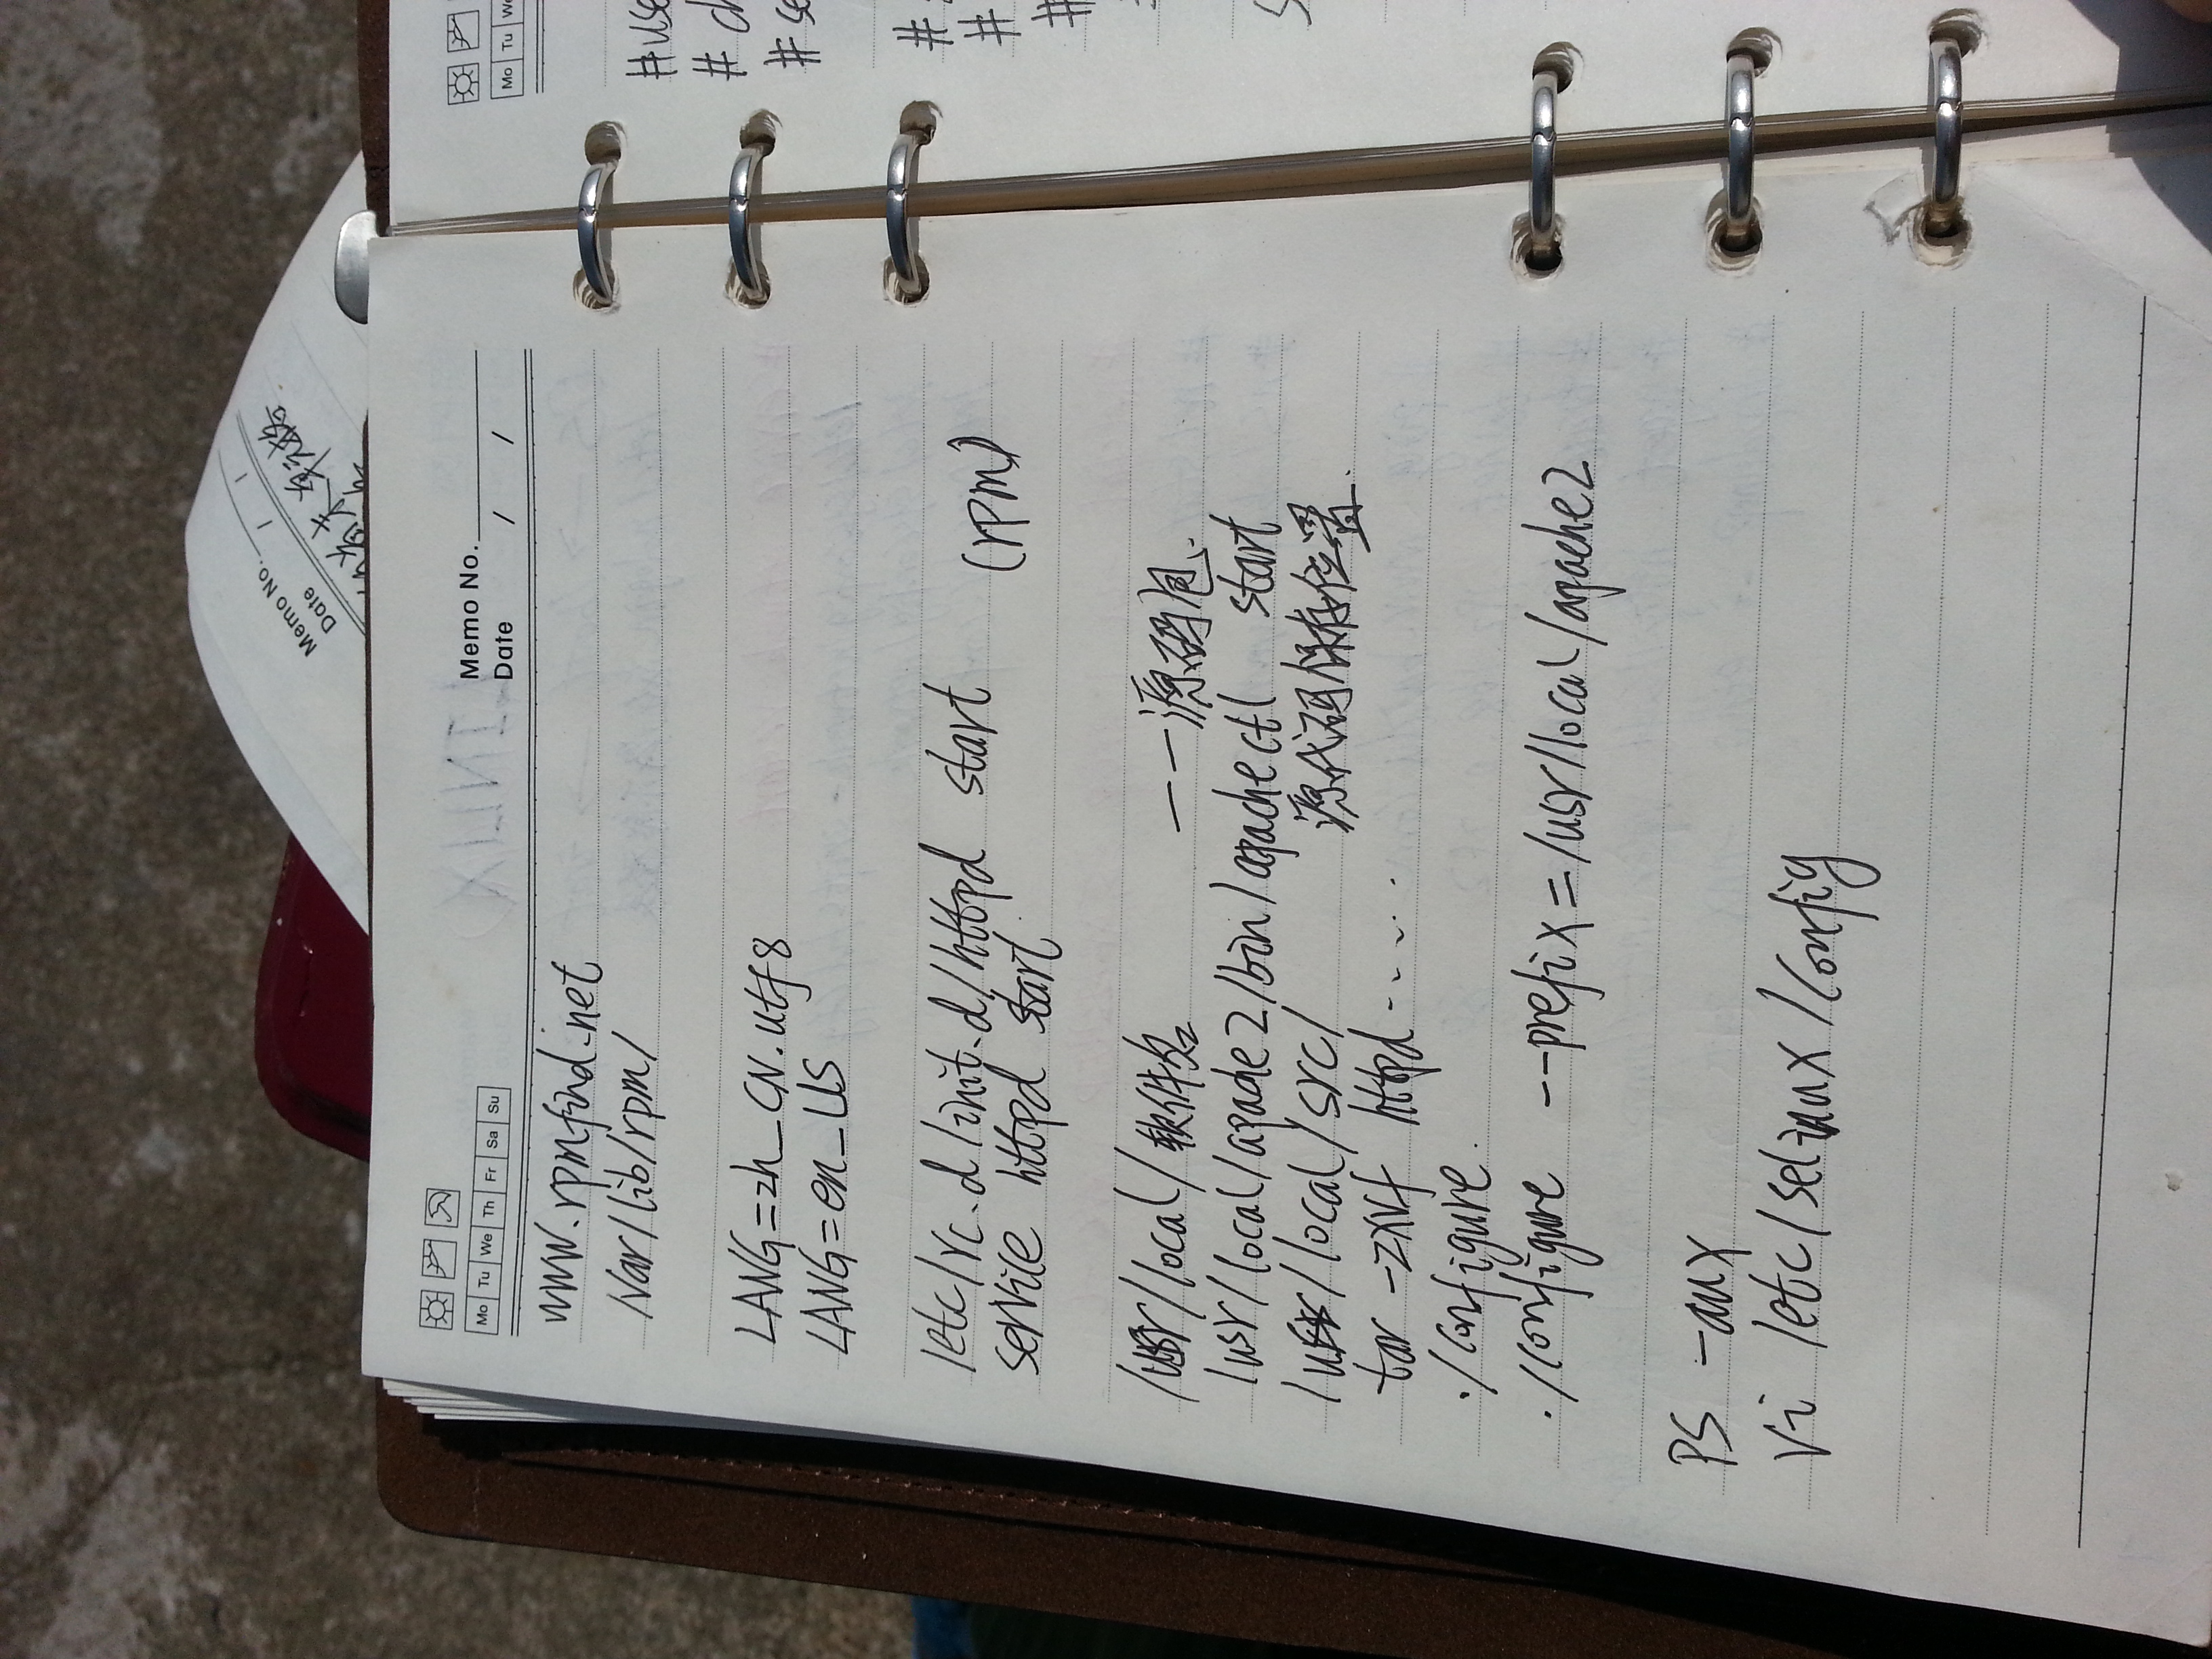 Memo No.
Date / /
Mo Tu We Th Fr Sa Su
Memo No.
Date / /
www.rpmfind.net
/var/lib/rpm/
LANG=zh_CN.utf8
LANG=en_US
/etc/rc.d/init.d/httpd start (rpm)
service httpd start
/usr/local/软件名 --源码包.
/usr/local/apache2/bin/apachectl start
/usr/local/src/ 源代码保存位置.
tar -zxvf httpd......
./configure.
./configure --prefix=/usr/local/apache2
PS -aux
vi /etc/selinux/config
Mo Tu
#
#
#
#
#
#